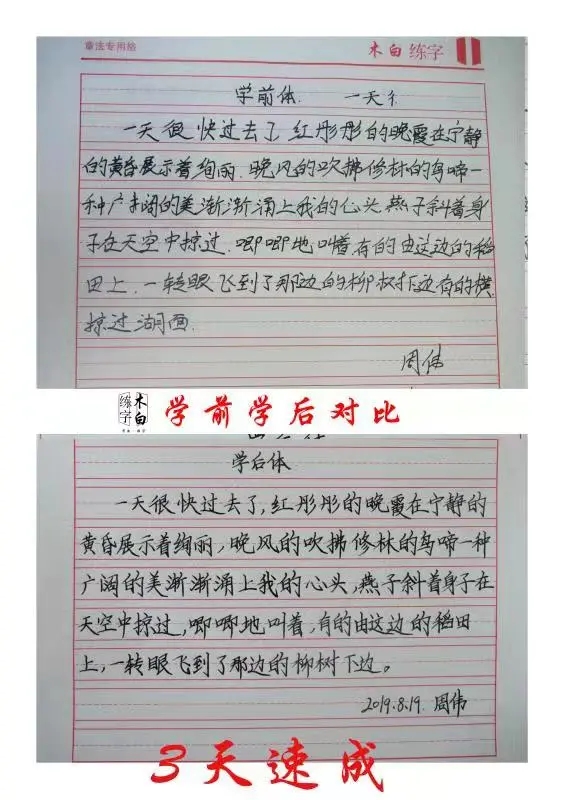 章法专用纸 木白 练字
学前体. 一天彳
一天很快过去了 红彤彤的晚霞在宁静
的黄昏展示着绚丽. 晚风的吹拂修林的鸟啼一
种广阔的美渐渐涌上我的心头 燕子斜着身
子在天空中掠过. 唧唧地叫着.有的由这边的稻
田上. 一转眼飞到了那边的柳树下边有的横
掠过湖面.
周伟
木白练字
学前学后对比
学后体
一天很快过去了,红彤彤的晚霞在宁静的
黄昏展示着绚丽,晚风的吹拂修林的鸟啼一种
广阔的美渐渐涌上我的心头,燕子斜着身子在
天空中掠过,唧唧地叫着,有的由这边的稻田
上,一转眼飞到了那边的柳树下边。
2019.8.19. 周伟
3天速成